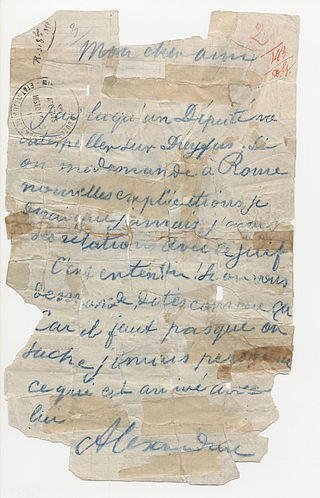 Mon cher ami
J'ai lu qu'un Député va
interpeller sur Dreyfus. Si
on me demande à Rome
nouvelles explications, je
dirai que jamais j'avais
des relations avec ce juif.
C'est entendu. Si on vous
demande, dites comme ça,
Car il faut pas que on
sache jamais personne
ce qui est arrivé avec
lui
Alexandrine